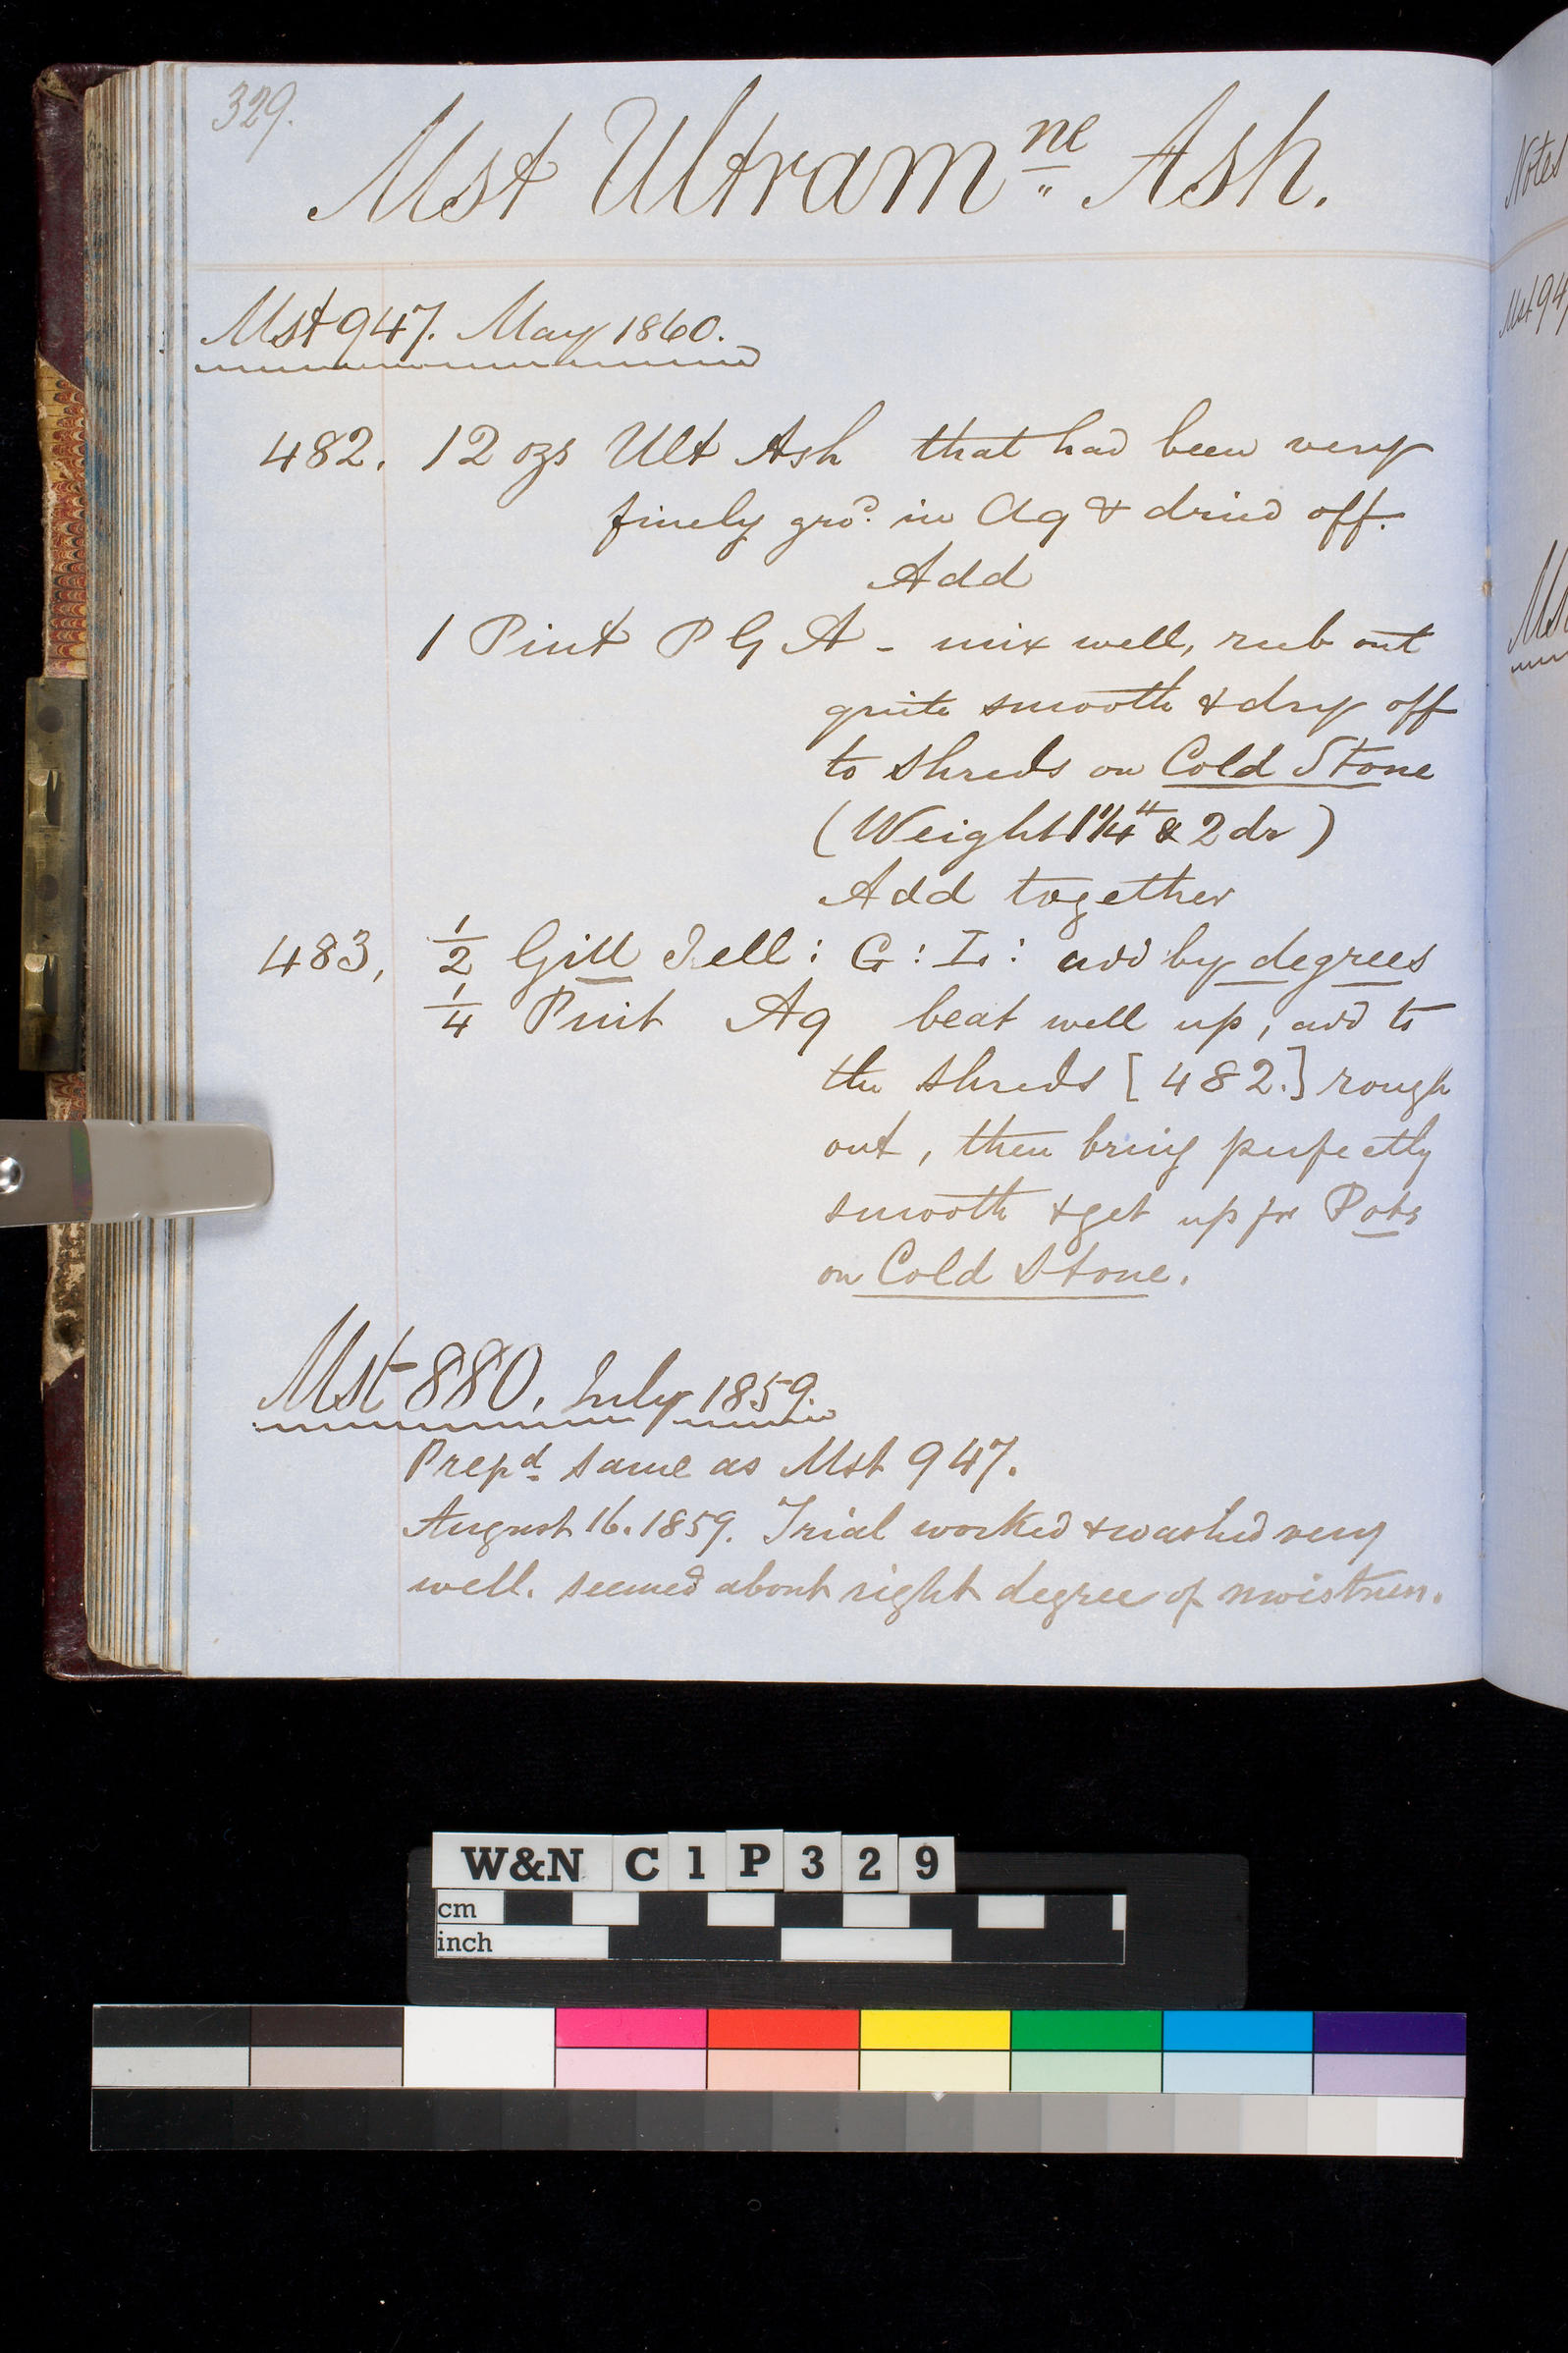 329.
Mst Ultram^ne Ash.
Mst 947. May 1860.
482. 12 ozs Ult Ash that had been very
finely gro^d. in Aq & dried off.
Add
1 Pint P G A - mix well, rub out
quite smooth & dry off
to shreds on Cold Stone
(Weight 1 1/4 " & 2 dr)
Add together
483, 1/2 Gill Jell: G: L: add by degrees
1/4 Pint Aq beat well up, add to
the shreds [482.] rough
out, then bring perfectly
smooth & get up for Pots
on Cold Stone.
Mst 880. July 1859.
Prep^d same as Mst 947.
August 16. 1859. Trial worked & washed very
well. seemed about right degree of moistness.
Notes
Mst 94
W&N C1P329
cm
inch